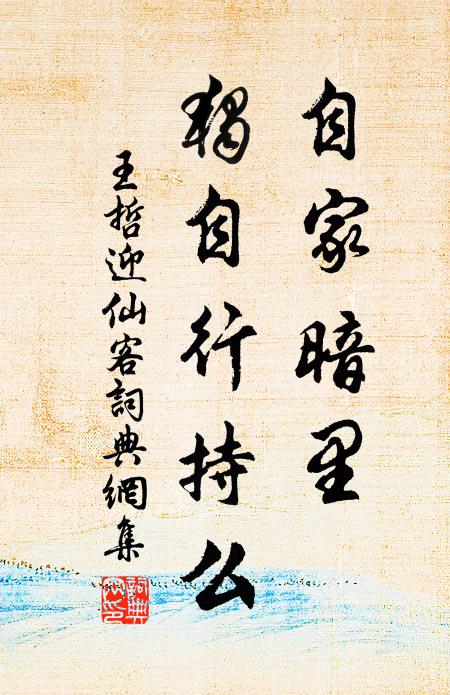 自家暗里
獨自行持么
王哲迎仙客詞典網集